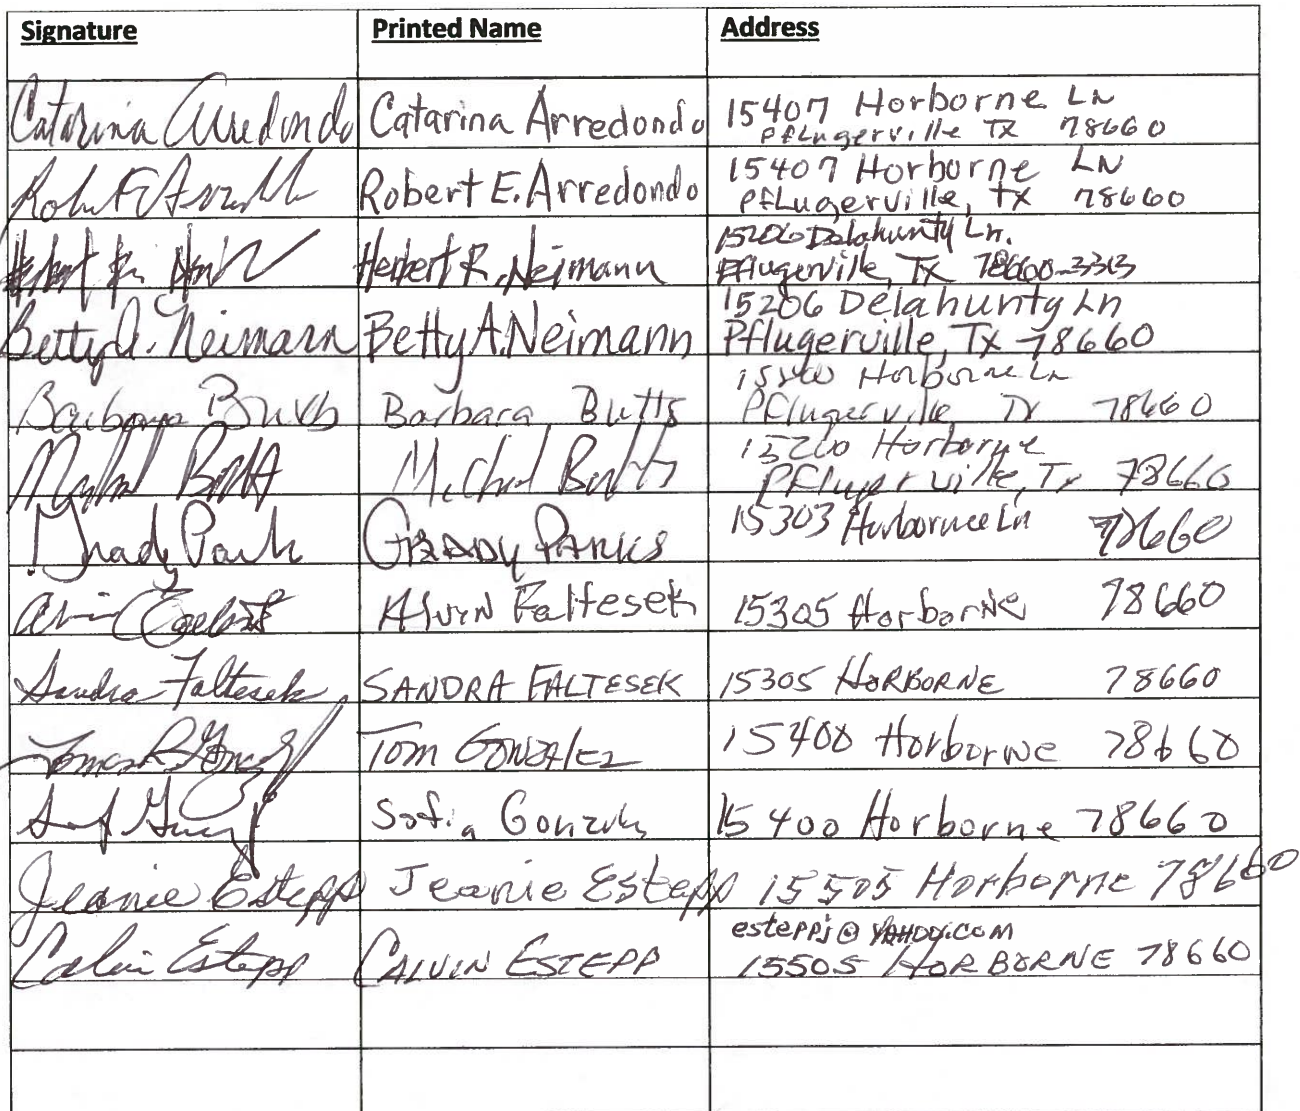 Signature Printed Name Address
Catarina Arredondo Catarina Arredondo 15407 Horborne LN
Pflugerville TX 78660
Robert E. Arredondo 15407 Horborne LN
Pflugerville, TX 78660
Herbert R. Neimann 15206 Delahunty Ln.
Pflugerville, Tx 78660-3313
Betty A. Neimann Betty A. Neimann 15206 Delahunty Ln
Pflugerville, Tx 78660
Barbara Butts Barbara Butts Horborne Ln
Pflugerville, Tx 78660
Butts 15200 Horborne
Pflugerville, Tx 78660
Grady Parks GRADY PARKS 15303 Ln 78660
Alvin Faltesek 15305 Horborne 78660
Sandra Faltesek SANDRA FALTESEK 15305 HORBORNE 78660
Tom GONZALEZ 15400 Horborne 78660
Sofia 15400 Horborne 78660
Jeanie Estepp Jeanie Estepp 15505 Horborne 78660
esteppj@YAHOO.COM
Calvin Estepp CALVIN ESTEPP 15505 HORBORNE 78660